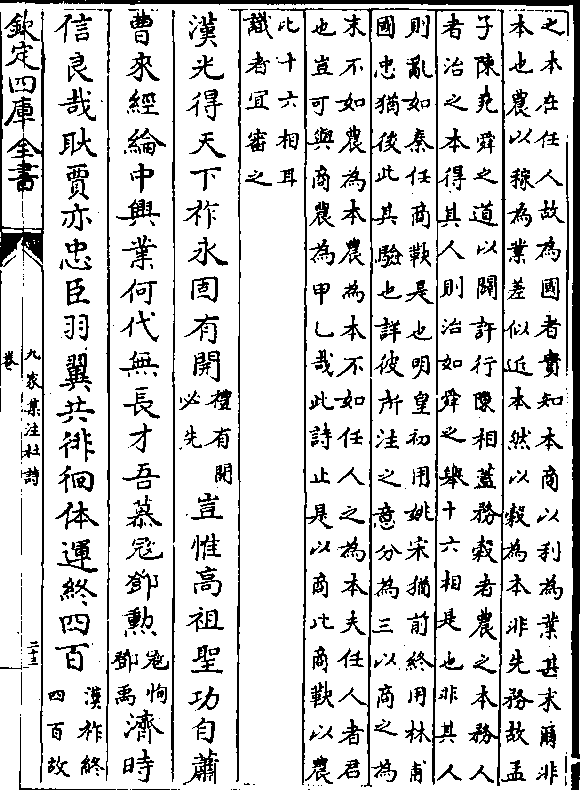 之本在任人故為國者貴知本商以利為業甚求爾非
本也農以稼為業差似近本然以榖為本非先務故孟
子陳堯舜之道以闢許行陳相蓋務榖者農之本務人
者治之本得其人則治如舜之舉十六相是也非其人
則亂如秦任商歟是也明皇初用姚宋猶前終用林甫
國忠猶後此其驗也詳彼所注之意分為三以商之為
末不如農為本農為本不如任人之為本夫任人者君
也豈可與商農為甲乙哉此詩止是以商比商歟以農
比十六相耳
識者宜審之
漢光得天下祚永固有開禮有開必先豈惟高祖聖功自蕭
曹來經綸中興業何代無長才吾慕寇鄧勲寇恂鄧禹濟時
信良哉耿賈亦忠臣羽翼共徘徊休運終四百漢祚終四百故
欽定四庫全書
九家集注杜詩
卷
二十三